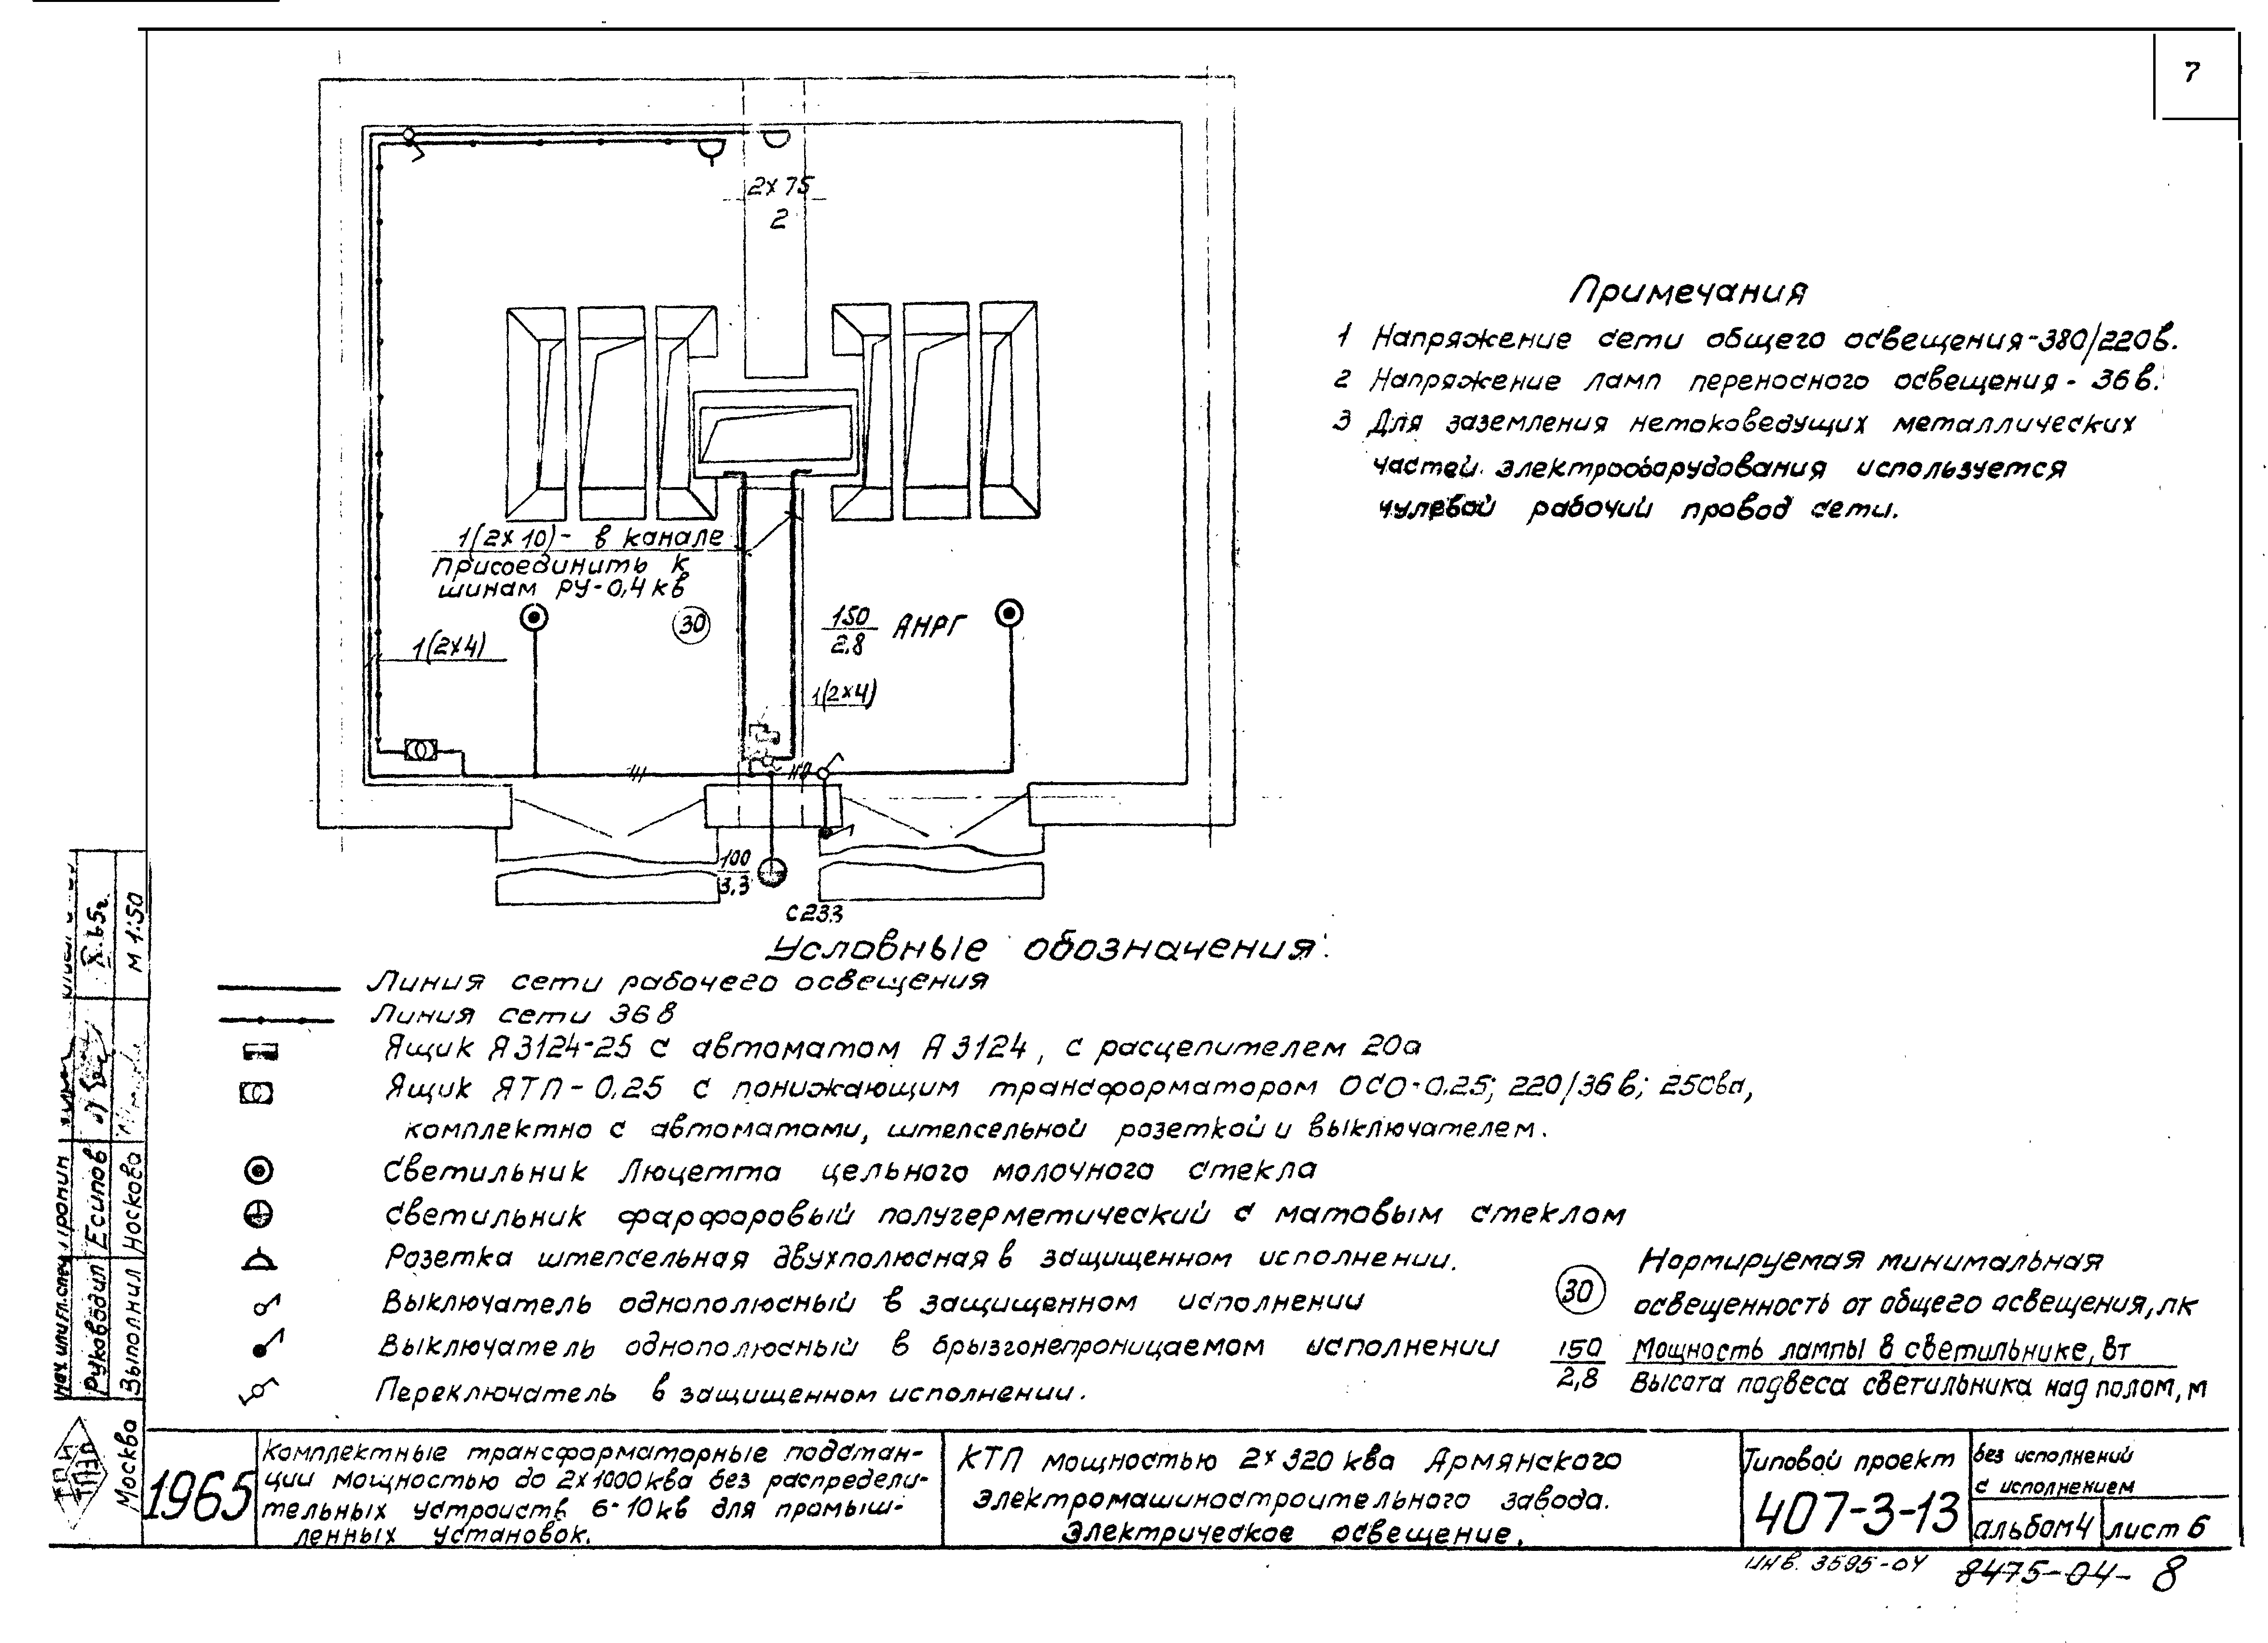 7
2х75
2
1(2х10)- в канале
Присоединить к
шинам РУ-0,4кв
30
150
2.8
АНРГ
1(2х4)
1(2х4)
100
3.3
Примечания
1 Напряжение сети общего освещения-380/220в.
2 Напряжение ламп переносного освещения- 36в.
3 Для заземления нетоковедущих металлических
частей электрооборудования используется
нулевой рабочий провод сети.
Условные обозначения:
Линия сети рабочего освещения
Линия сети 36в
Ящик Я3124-25 с автоматом А3124, с расцепителем 20а
Ящик ЯТП-0.25 с понижающим трансформатором ОСО-0.25; 220/36в; 250ва,
комплектно с автоматами, штепсельной розеткой и выключателем.
Светильник Люцетта цельного молочного стекла
Светильник фарфоровый полугерметический с матовым стеклом
Розетка штепсельная двухполюсная в защищенном исполнении.
Выключатель однополюсный в защищенном исполнении
Выключатель однополюсный в брызгонепроницаемом исполнении
Переключатель в защищенном исполнении.
30
Нормируемая минимальная
освещенность от общего освещения, лк
150
2,8
Мощность лампы в светильнике, вт
Высота подвеса светильника над полом, м
М 1:50
Руководил Есипов
Выполнил Носкова
Москва
1965
Комплектные трансформаторные подстан-
ции мощностью до 2х1000ква без распредели-
тельных устройств 6-10кв для промыш-
ленных установок.
КТП мощностью 2х320 ква Армянского
электромашиностроительного завода.
Электрическое освещение.
Типовой проект
407-3-13
без исполнений
с исполнением
альбом 4
лист 6
инв. 3595-04
8475-04- 8